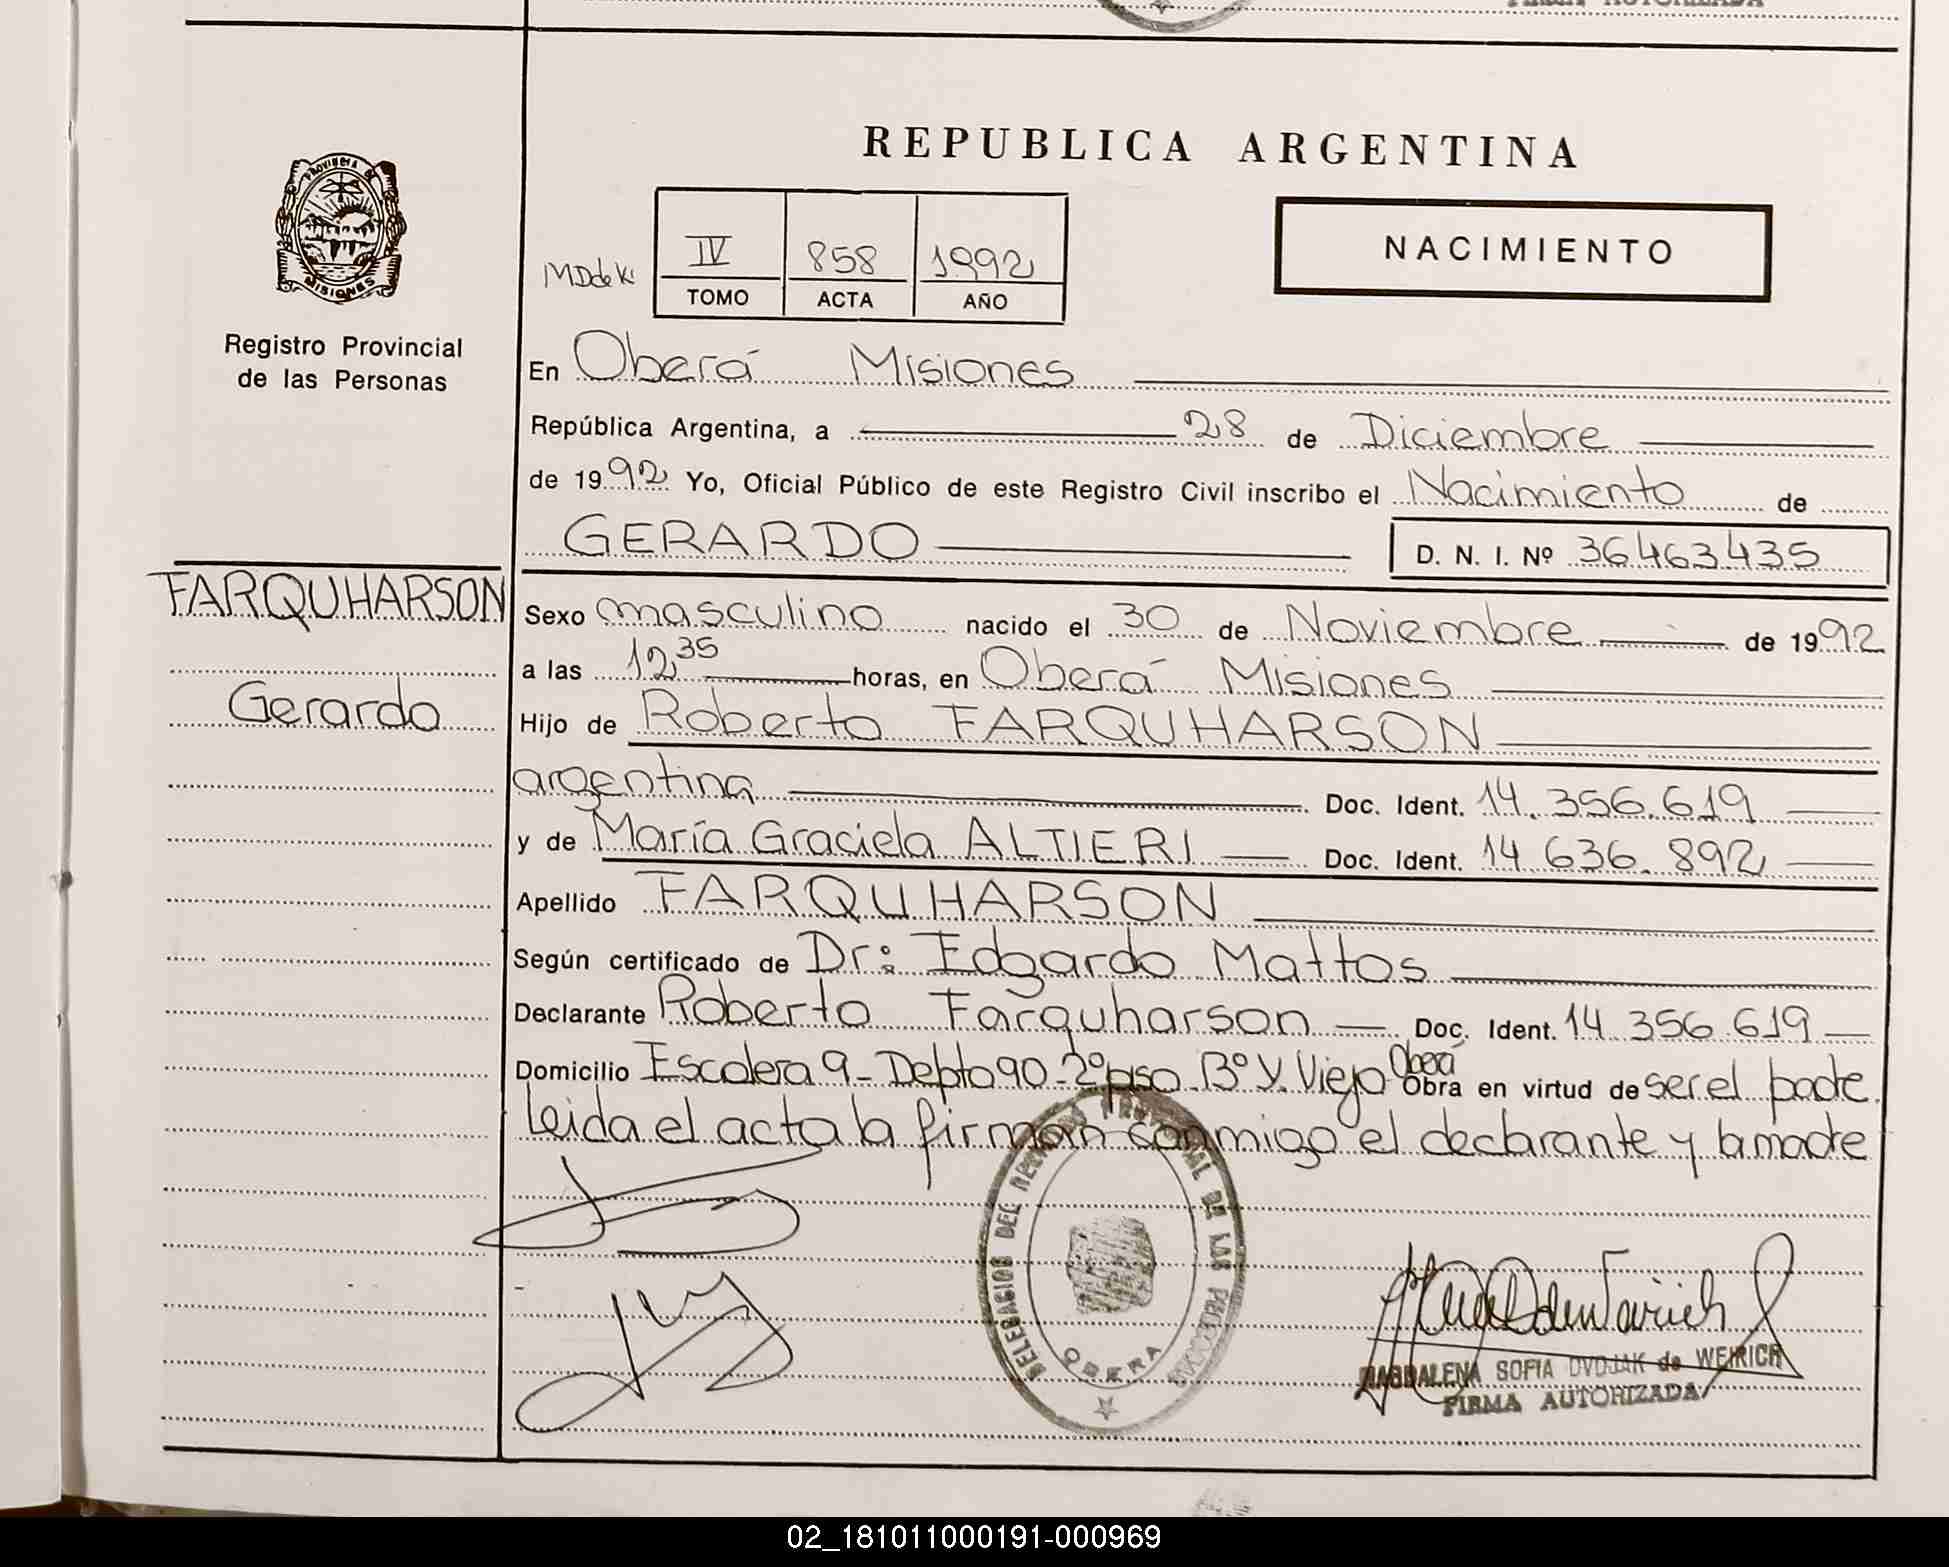 REPUBLICA ARGENTINA
PROVINCIA DE
MISIONES
Registro Provincial
de las Personas
MDdeK
IV 858 1992
TOMO ACTA AÑO
NACIMIENTO
En Oberá Misiones
República Argentina, a 28 de Diciembre
de 1992 Yo, Oficial Público de este Registro Civil inscribo el Nacimiento de
GERARDO D. N. I. Nº 36463435
FARQUHARSON
Gerardo
Sexo masculino nacido el 30 de Noviembre de 1992
a las 12,35 horas, en Oberá Misiones
Hijo de Roberto FARQUHARSON
argentina Doc. Ident. 14.356.619
y de María Graciela ALTIERI Doc. Ident. 14.636.892
Apellido FARQUHARSON
Según certificado de Dr: Edgardo Mattos
Declarante Roberto Farquharson Doc. Ident. 14.356.619
Domicilio Escalera 9- Depto 90-2º piso Bº V. Viejo Oberá Obra en virtud de ser el padre.
Leida el acta la firman conmigo el declarante y la madre
DELEGACION DEL REGISTRO PROVINCIAL DE LAS PERSONAS
OBERA
MAGDALENA SOFIA DVOJAK de WEIRICH
FIRMA AUTORIZADA
02_181011000191-000969